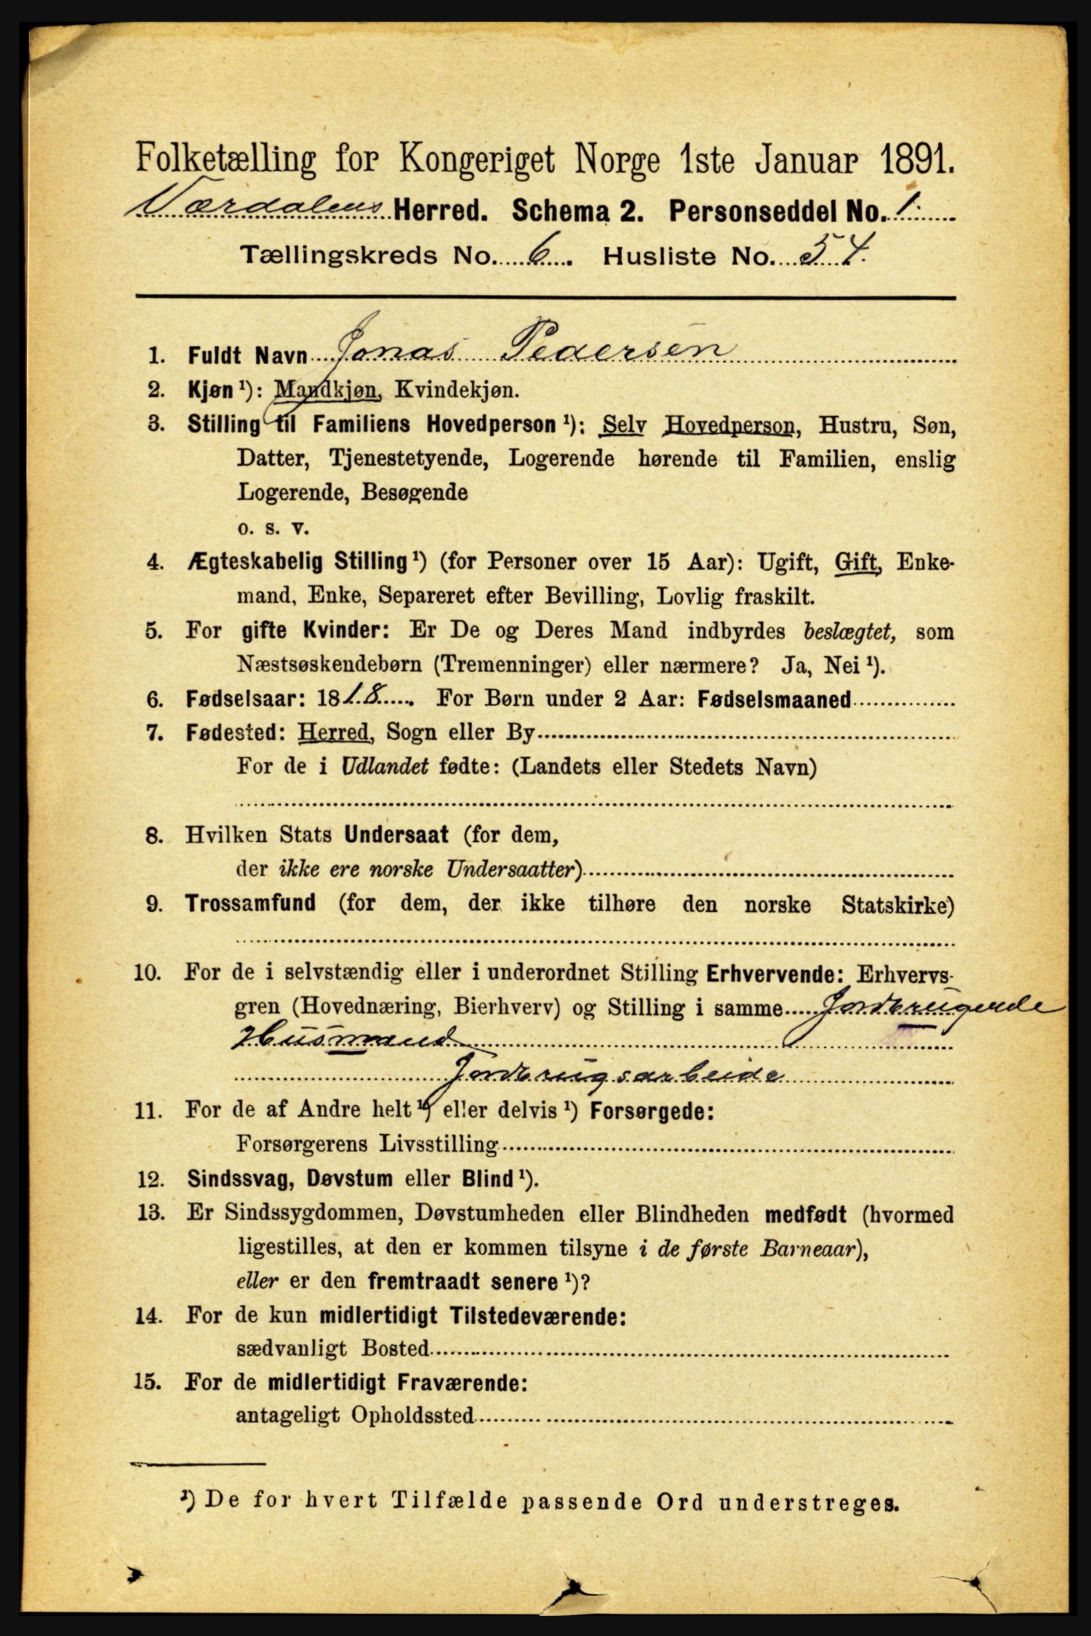 Folketælling for Kongeriget Norge 1ste Januar 1891.
Værdalens Herred. Schema 2. Personseddel No. 1.
Tællingskreds No. 6. Husliste No. 54.
1. Fuldt Navn Jonas Pedersen
2. Kjøn ¹): Mandkjøn, Kvindekjøn.
3. Stilling til Familiens Hovedperson ¹): Selv Hovedperson, Hustru, Søn,
Datter, Tjenestetyende, Logerende hørende til Familien, enslig
Logerende, Besøgende
o. s. v.
4. Ægteskabelig Stilling ¹) (for Personer over 15 Aar): Ugift, Gift, Enke-
mand, Enke, Separeret efter Bevilling, Lovlig fraskilt.
5. For gifte Kvinder: Er De og Deres Mand indbyrdes beslægtet, som
Næstsøskendebørn (Tremenninger) eller nærmere? Ja, Nei ¹).
6. Fødselsaar: 1818. For Børn under 2 Aar: Fødselsmaaned
7. Fødested: Herred, Sogn eller By
For de i Udlandet fødte: (Landets eller Stedets Navn)
8. Hvilken Stats Undersaat (for dem,
der ikke ere norske Undersaatter)
9. Trossamfund (for dem, der ikke tilhøre den norske Statskirke)
10. For de i selvstændig eller i underordnet Stilling Erhvervende: Erhvervs-
gren (Hovednæring, Bierhverv) og Stilling i samme Jordbrugende
Husmand
Jordbrugsarbeide
11. For de af Andre helt ¹) eller delvis ¹) Forsørgede:
Forsørgerens Livsstilling
12. Sindssvag, Døvstum eller Blind ¹).
13. Er Sindssygdommen, Døvstumheden eller Blindheden medfødt (hvormed
ligestilles, at den er kommen tilsyne i de første Barneaar),
eller er den fremtraadt senere ¹)?
14. For de kun midlertidigt Tilstedeværende:
sædvanligt Bosted
15. For de midlertidigt Fraværende:
antageligt Opholdssted
¹) De for hvert Tilfælde passende Ord understreges.